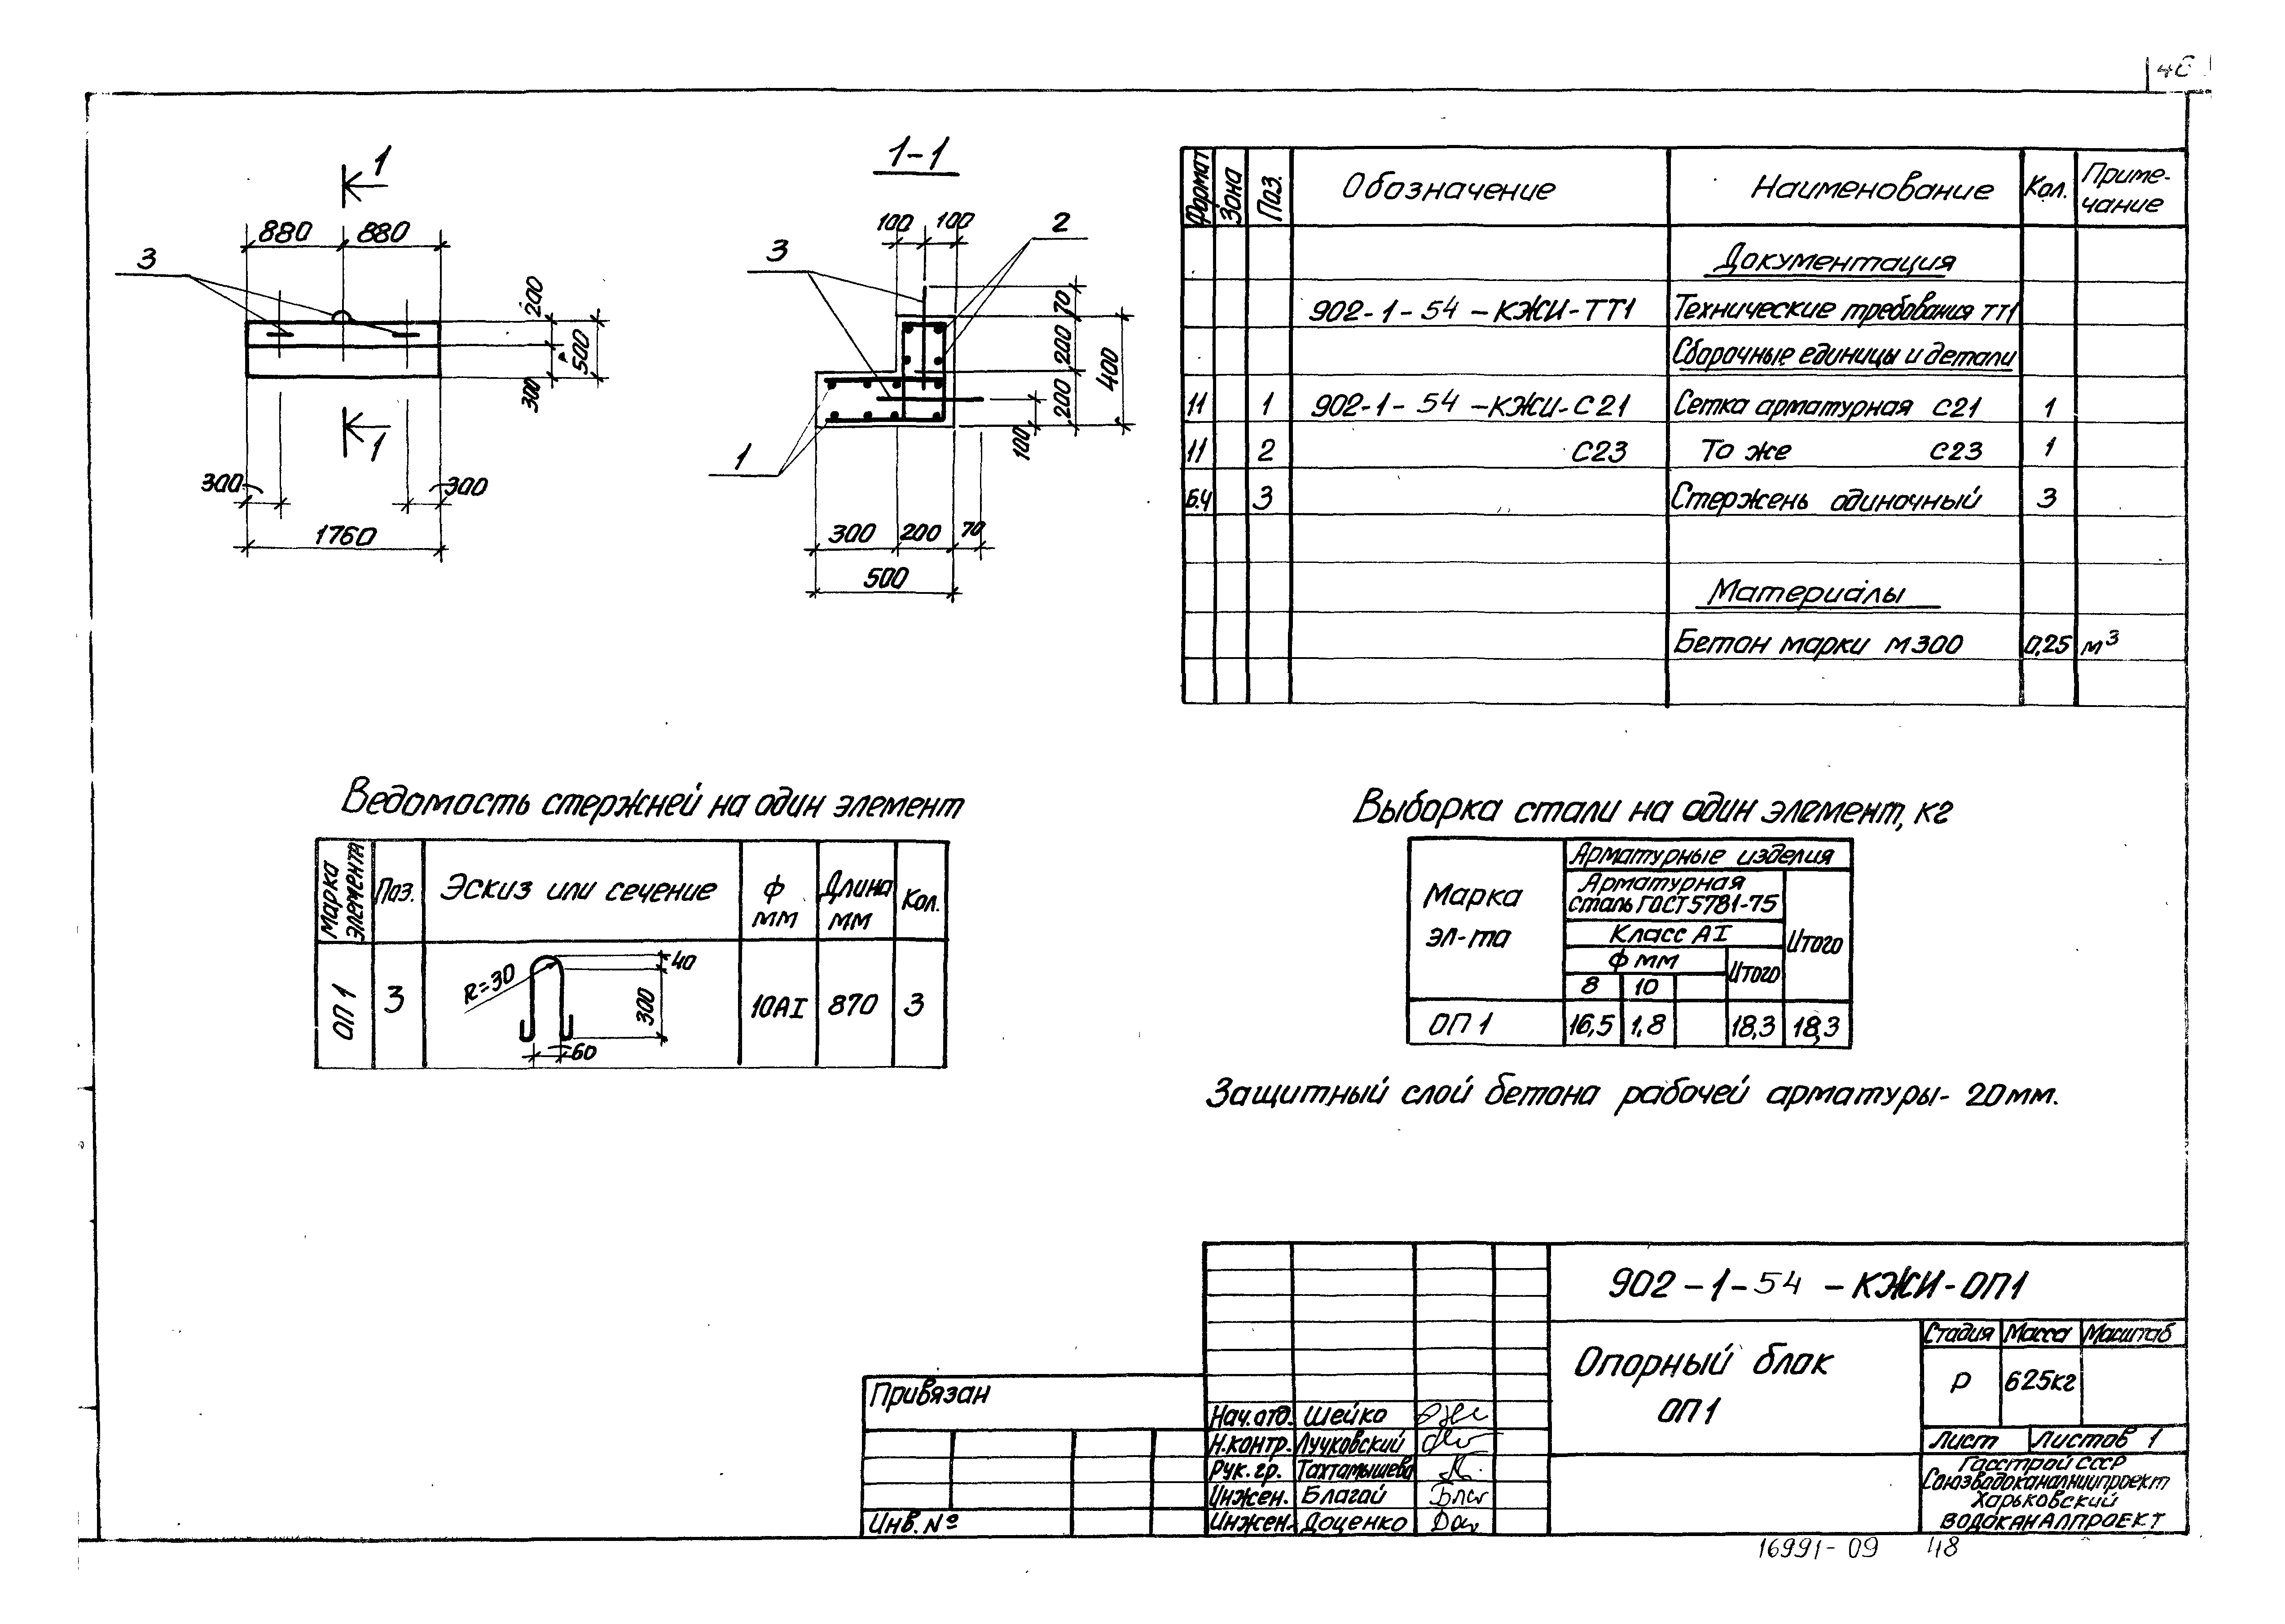 1
880 880
3
200
500
300
1
300 300
1760
1-1
100 100
2
3
70
200
400
200
100
1
300 200 70
500
Формат Зона Поз. Обозначение Наименование Кол. Приме-
чание
Документация
902-1-54-КЖИ-ТТ1 Технические требования ТТ1
Сборочные единицы и детали
11 1 902-1-54-КЖИ-С21 Сетка арматурная С21 1
11 2 С23 То же С23 1
Б.Ч 3 Стержень одиночный 3
Материалы
Бетон марки М300 0,25 м³
Ведомость стержней на один элемент
Марка элемента Поз. Эскиз или сечение ф мм Длина мм Кол.
ОП1 3 R=30 40 300 60 10АI 870 3
Выборка стали на один элемент, кг
Марка эл-та
Арматурные изделия
Арматурная
сталь ГОСТ 5781-75
Класс АI Итого
ф мм Итого
8 10
ОП1 16,5 1,8 18,3 18,3
Защитный слой бетона рабочей арматуры- 20мм.
902-1-54-КЖИ-ОП1
Опорный блок
ОП1
Стадия Масса Масштаб
Р 625кг
Лист Листов 1
Госстрой СССР
Союзводоканалниипроект
Харьковский
ВОДОКАНАЛПРОЕКТ
Привязан
Инв. №
Нач. отд. Шейко
Н.контр. Лучковский
Рук. гр. Тахтамышева
Инжен. Благой
Инжен. Доценко
16991-09 48